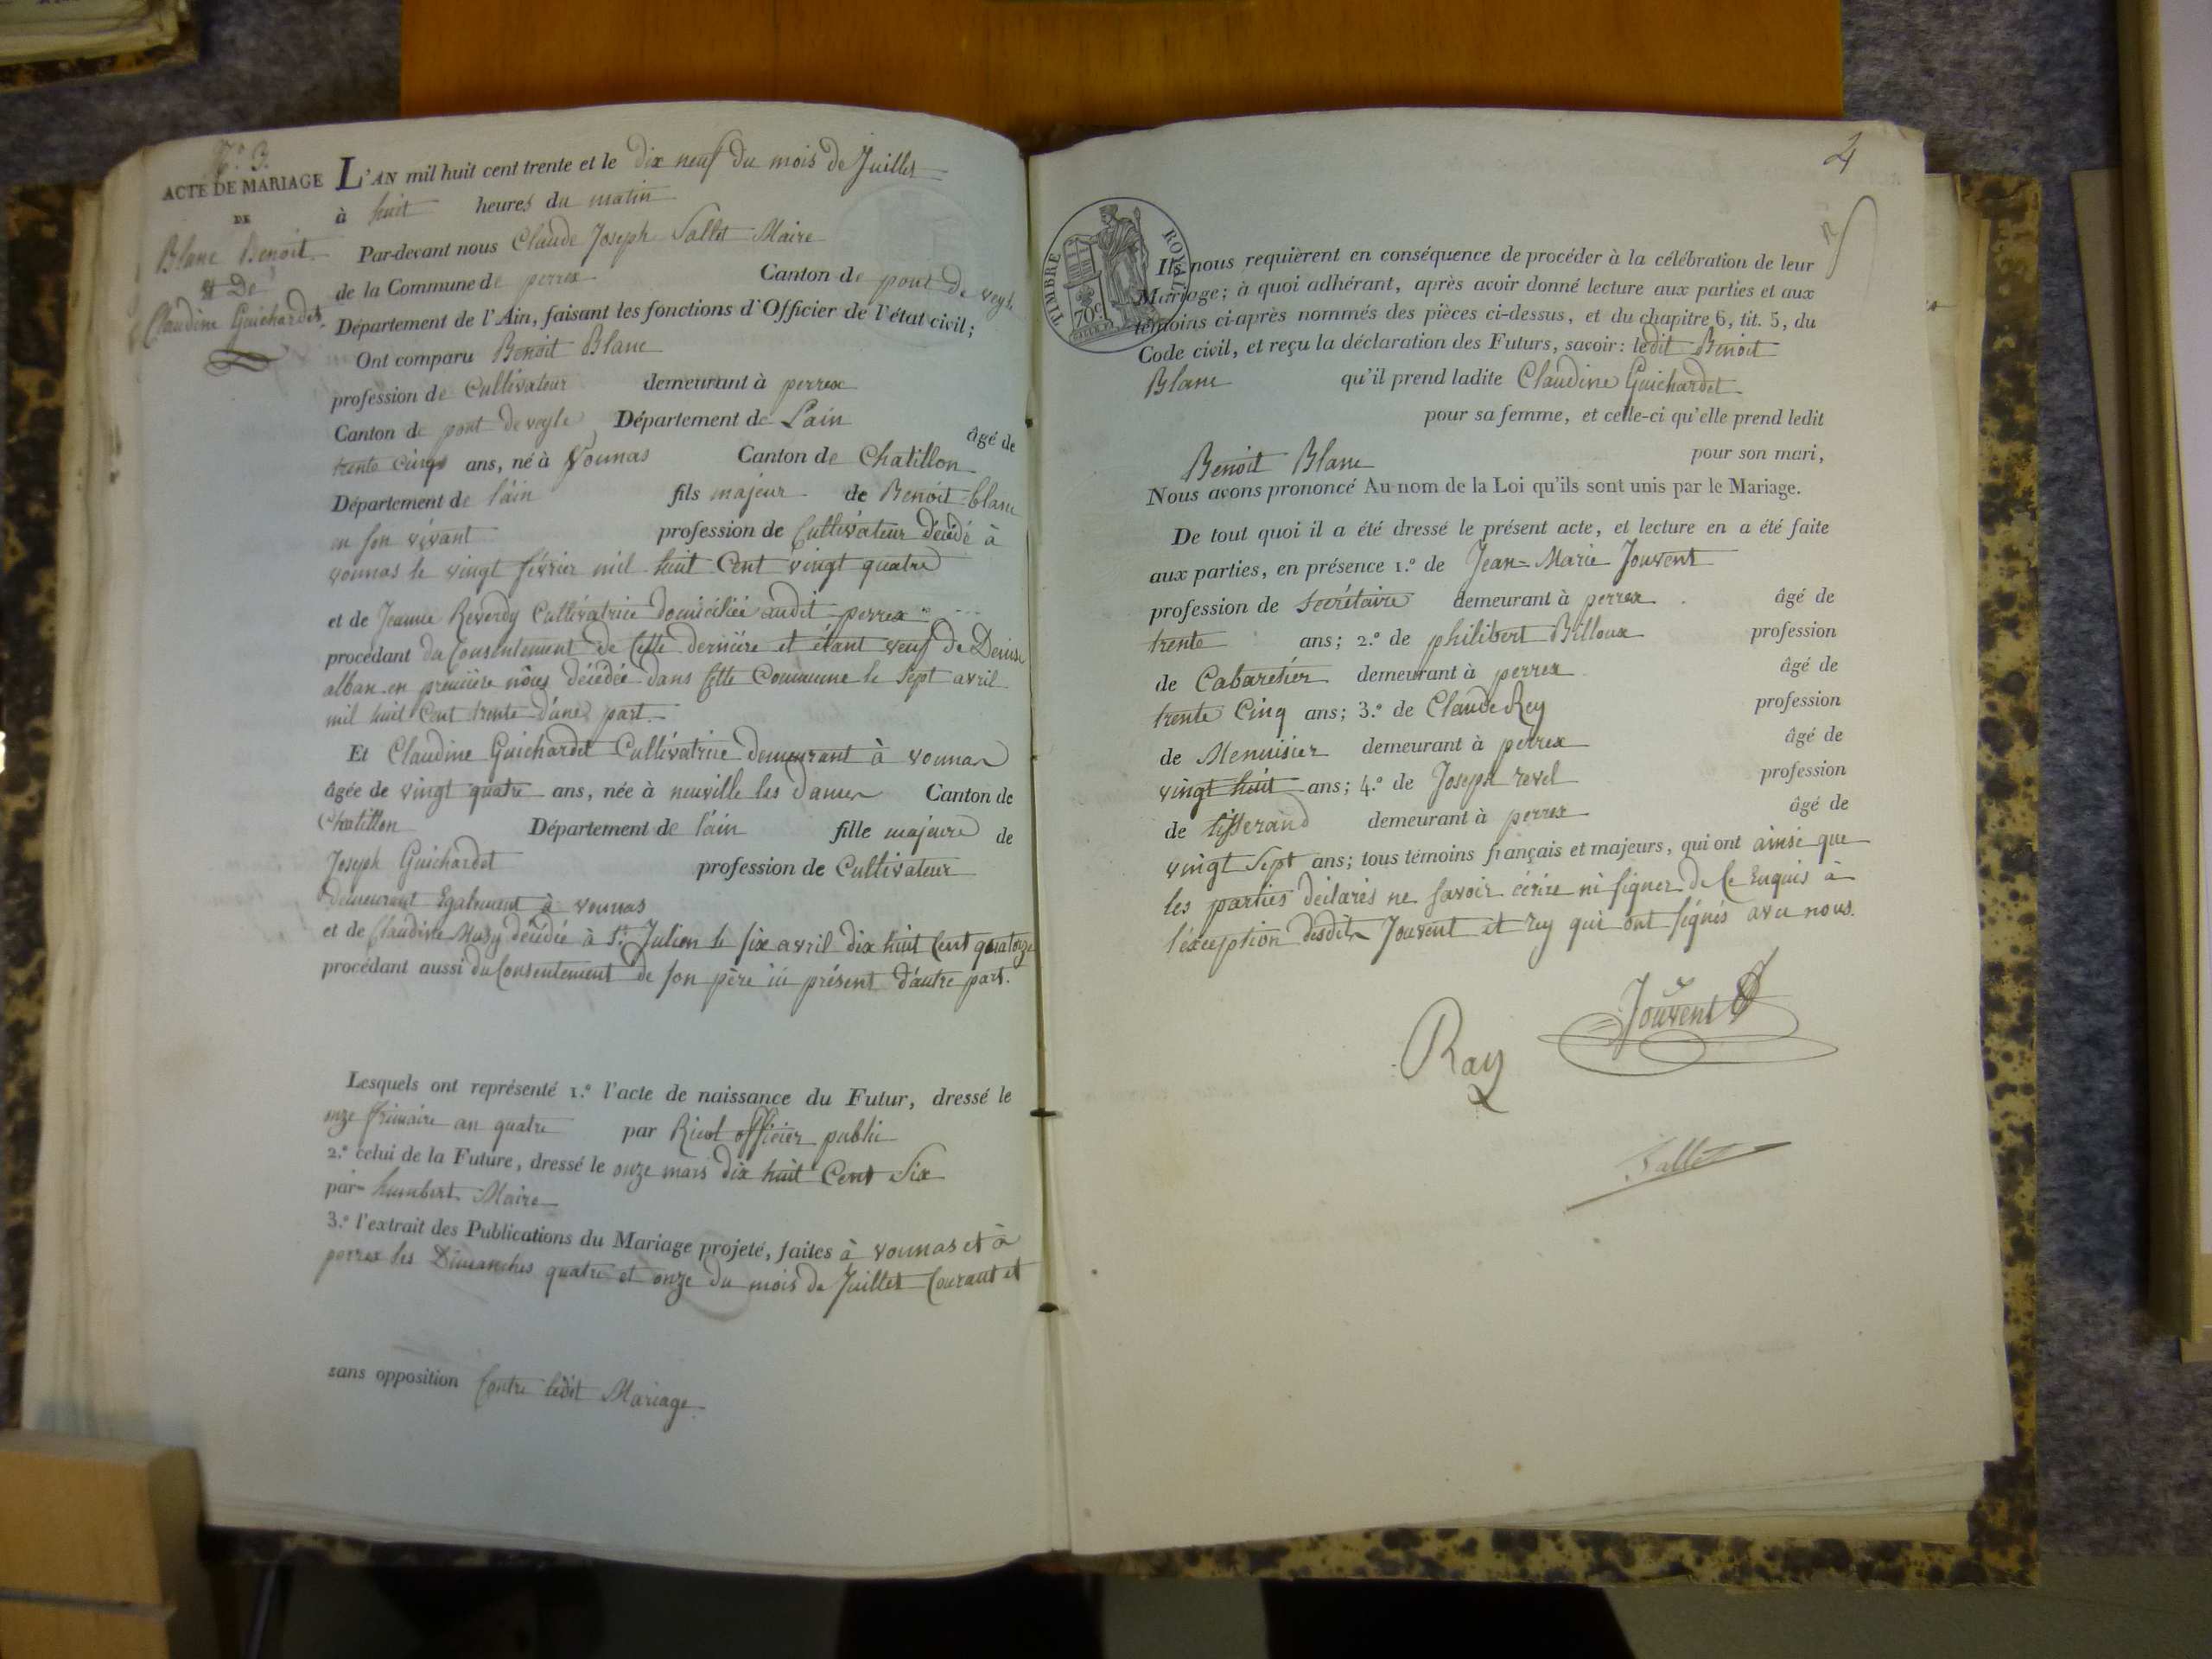 N.° 3.
ACTE DE MARIAGE
DE
Blanc Benoit
et De
Claudine Guichardet
L'AN mil huit cent trente et le dix neuf du mois de Juillet
à huit heures du matin
Par-devant nous Claude Joseph Sallet Maire
de la Commune de perrex Canton de pont de veyle
Département de l'Ain, faisant les fonctions d'Officier de l'état civil;
Ont comparu Benoit Blanc
profession de Cultivateur demeurant à perrex
Canton de pont de veyle Département de L'ain âgé de
trente cinq ans, né à Vonnas Canton de Chatillon
Département de l'ain fils majeur de Benoit blanc
en son vivant profession de Cultivateur décédé à
vonnas le vingt février mil huit Cent vingt quatre
et de Jeanne Reverdy Cultivatrice domiciliée audit perrex
procédant du Consentement de Cette dernière et étant veuf de Denise
alban en première nôces décédée dans cette Commune le Sept avril
mil huit Cent trente d'une part.
Et Claudine Guichardet Cultivatrice demeurant à vonnas
âgée de vingt quatre ans, née à neuville les dames Canton de
Chatillon Département de l'ain fille majeure de
Joseph Guichardet profession de Cultivateur
demeurant Egalement à vonnas
et de Claudine Muzy décédée à St. Julien le six avril dix huit Cent quatorze
procédant aussi du Consentement de son père ici présent d'autre part.
Lesquels ont représenté 1.° l'acte de naissance du Futur, dressé le
onze frimaire an quatre par Ricol officier public
2.° celui de la Future, dressé le onze mars dix huit Cent Six
par humbert Maire
3.° l'extrait des Publications du Mariage projeté, faites à vonnas et à
perrex les Dimanches quatre et onze du mois de Juillet Courant et
sans opposition Contre ledit Mariage
4
TIMBRE ROYAL
70c
Ils nous requièrent en conséquence de procéder à la célébration de leur
Mariage; à quoi adhérant, après avoir donné lecture aux parties et aux
témoins ci-après nommés des pièces ci-dessus, et du chapitre 6, tit. 5, du
Code civil, et reçu la déclaration des Futurs, savoir: ledit Benoit
Blanc qu'il prend ladite Claudine Guichardet
pour sa femme, et celle-ci qu'elle prend ledit
Benoit Blanc pour son mari,
Nous avons prononcé Au nom de la Loi qu'ils sont unis par le Mariage.
De tout quoi il a été dressé le présent acte, et lecture en a été faite
aux parties, en présence 1.° de Jean-Marie Jouvent
profession de Secrétaire demeurant à perrex âgé de
trente ans; 2.° de philibert Billoux profession
de Cabaretier demeurant à perrex âgé de
trente Cinq ans; 3.° de Claude Rey profession
de Menuisier demeurant à perrex âgé de
vingt huit ans; 4.° de Joseph revel profession
de tisserand demeurant à perrex âgé de
vingt Sept ans; tous témoins français et majeurs, qui ont ainsi que
les parties déclarés ne savoir écrire ni signer de Ce Enquis à
l'éxception desdits Jouvent et rey qui ont signés avec nous.
Jouvent
Ray
Sallet